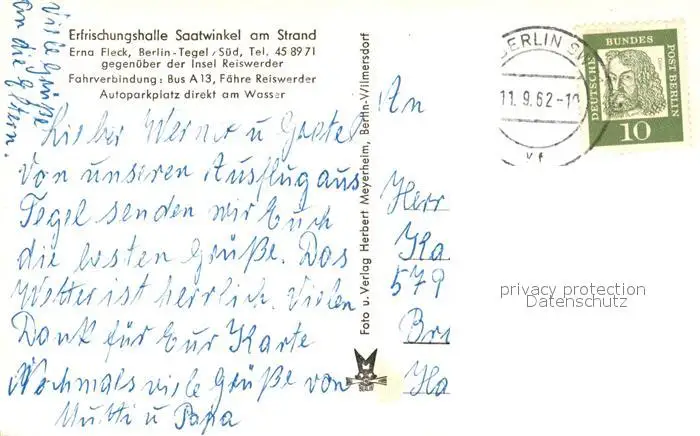 Erfrischungshalle Saatwinkel am Strand
Erna Fleck, Berlin-Tegel/Süd, Tel. 45 89 71
gegenüber der Insel Reiswerder
Fahrverbindung: Bus A 13, Fähre Reiswerder
Autoparkplatz direkt am Wasser
Viele Grüße
an die Eltern.
Lieber Werner u Gretel
Von unseren Ausflug aus
Tegel senden wir Euch
die besten Grüße. Das
Wetter ist herrlich. Vielen
Dank für Eur Karte
Nochmals viele Grüße von
Mutti u Papa
Foto u. Verlag Herbert Meyerheim, Berlin-Wilmersdorf
BERLIN
An
Herr
Ka
579
Bri
Ha
BERLIN SW
11.9.62-1
vf
DEUTSCHE BUNDES POST BERLIN
10
privacy protection
Datenschutz